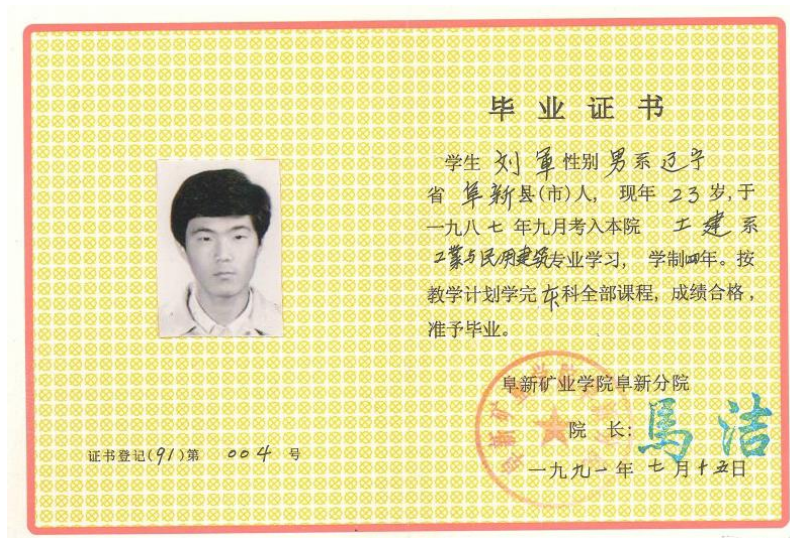 毕业证书
学生 刘军 性别 男 系 辽宁
省 阜新 县(市)人, 现年 23 岁,于
一九八七 年九月考入本院 土建 系
工業与民用建筑专业学习, 学制四年。按
教学计划学完本科全部课程, 成绩合格,
准予毕业。
阜新矿业学院阜新分院
院 长: 馬洁
一九九一 年 七 月 十五日
证书登记(91)第 004 号